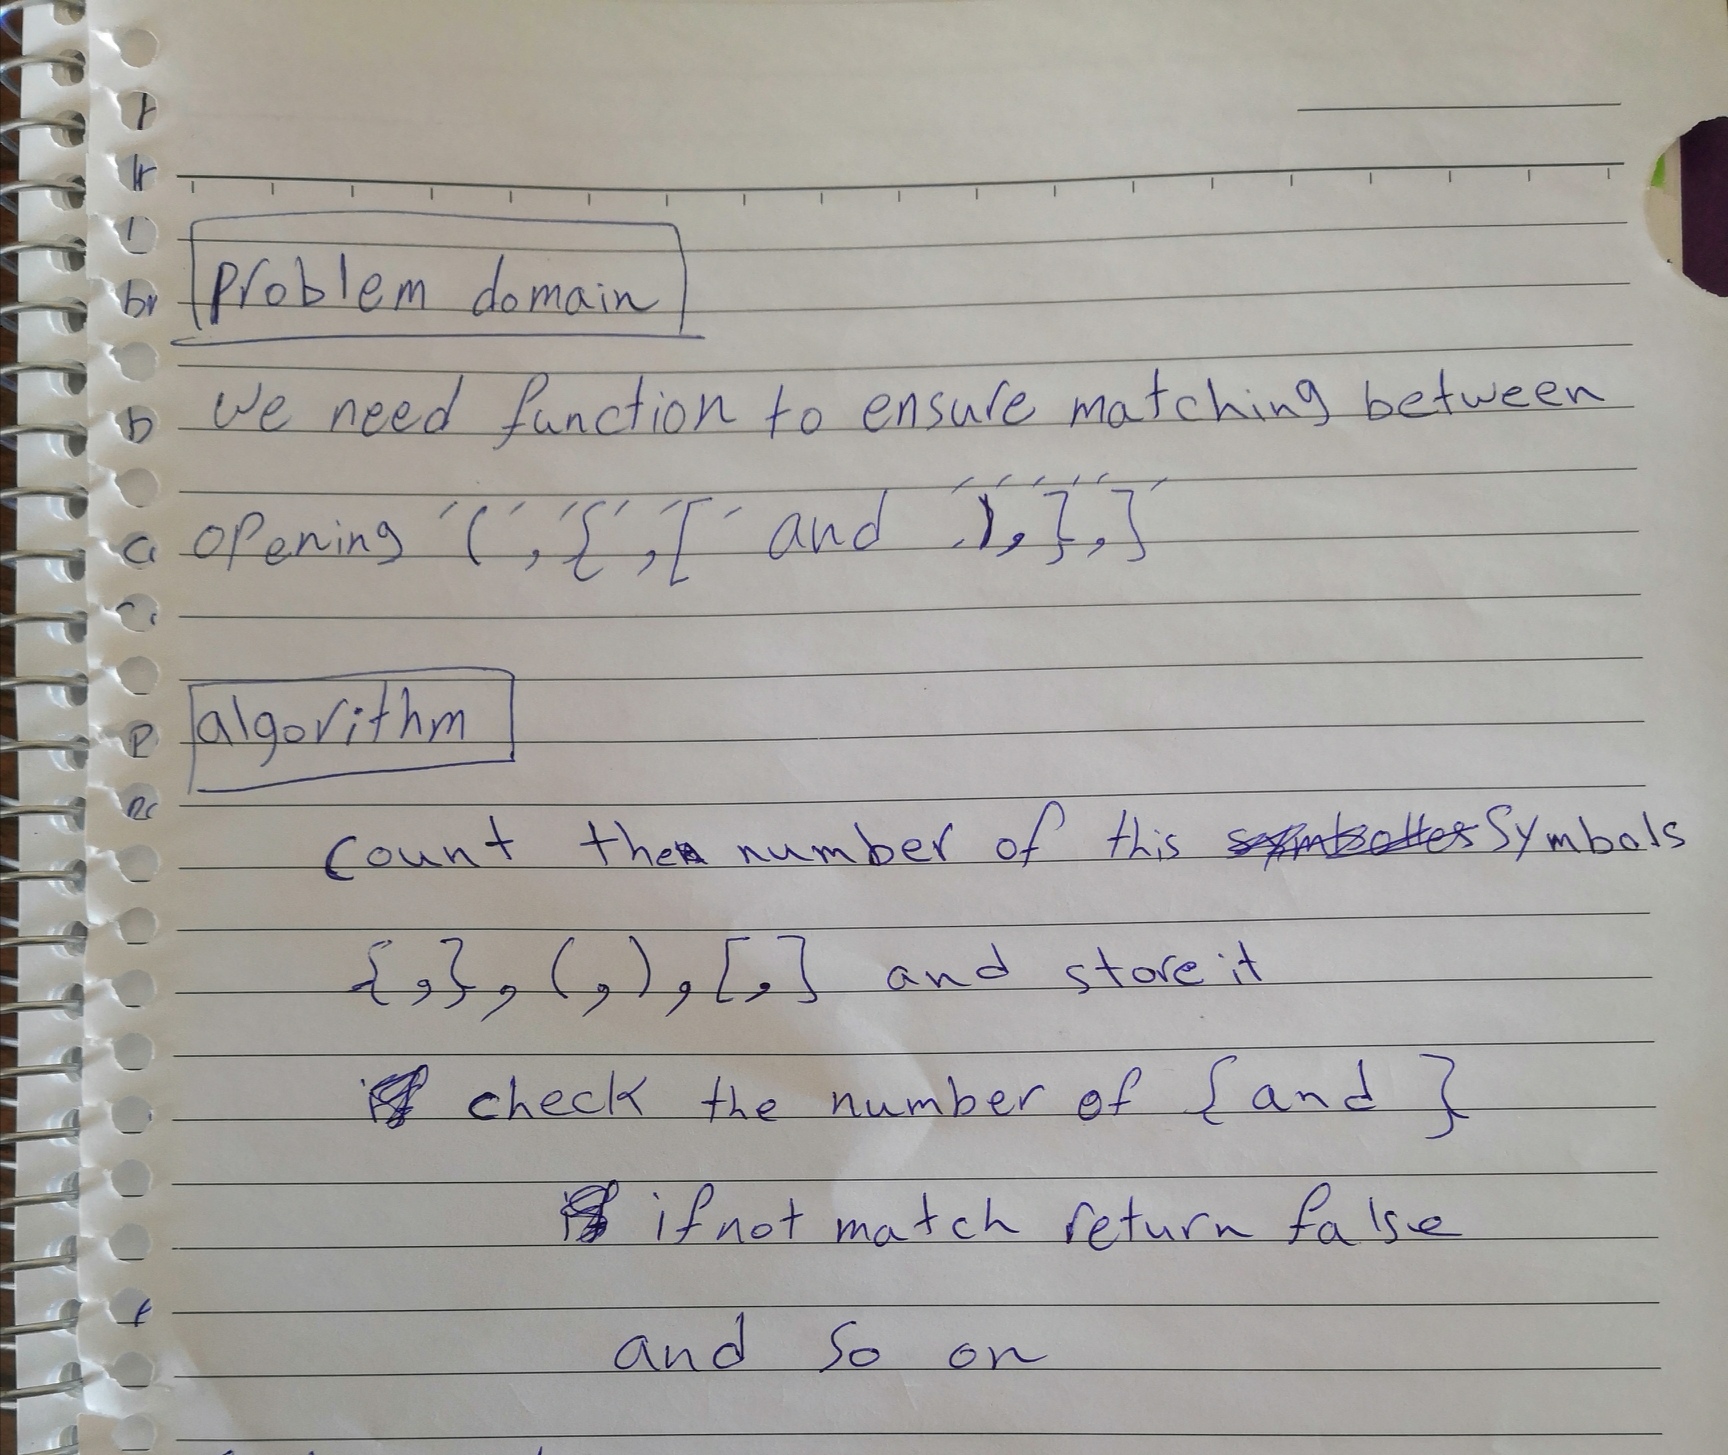 Problem domain
We need function to ensure matching between
opening '(', '{', '[' and ')', '}', ']'
algorithm
count the number of this symbols
{,}, (,), [,] and store it
check the number of { and }
if not match return false
and so on